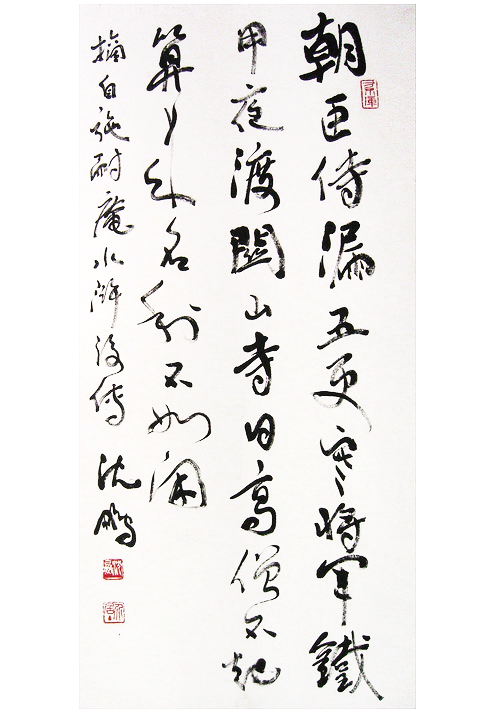 朝臣待漏五更寒將軍鐵
甲夜渡關山寺日高僧不起
算來名利不如閑
摘自施耐庵水滸後傳 沈鵬